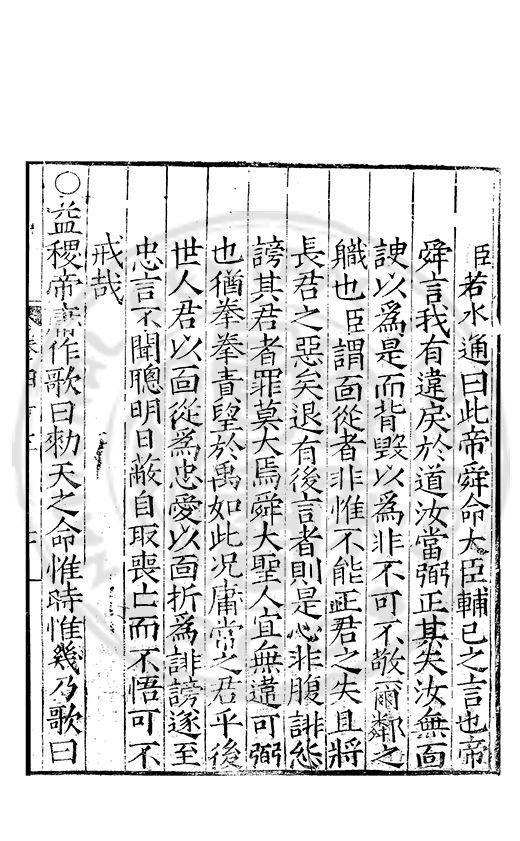 臣若水通曰此帝舜命大臣輔己之言也帝
舜言我有違戾於道汝當弼正其失汝無面
諛以爲是而背毀以爲非不可不敬爾鄰之
職也臣謂面從者非惟不能正君之失且將
長君之惡矣退有後言者則是心非腹誹怨
謗其君者罪莫大焉舜大聖人宜無違可弼
也猶拳拳責望於禹如此况庸常之君乎後
世人君以面從爲忠愛以面折爲誹謗遂至
忠言不聞聰明日蔽自取喪亡而不悟可不
戒哉
○益稷帝庸作歌曰勑天之命惟時惟幾乃歌曰